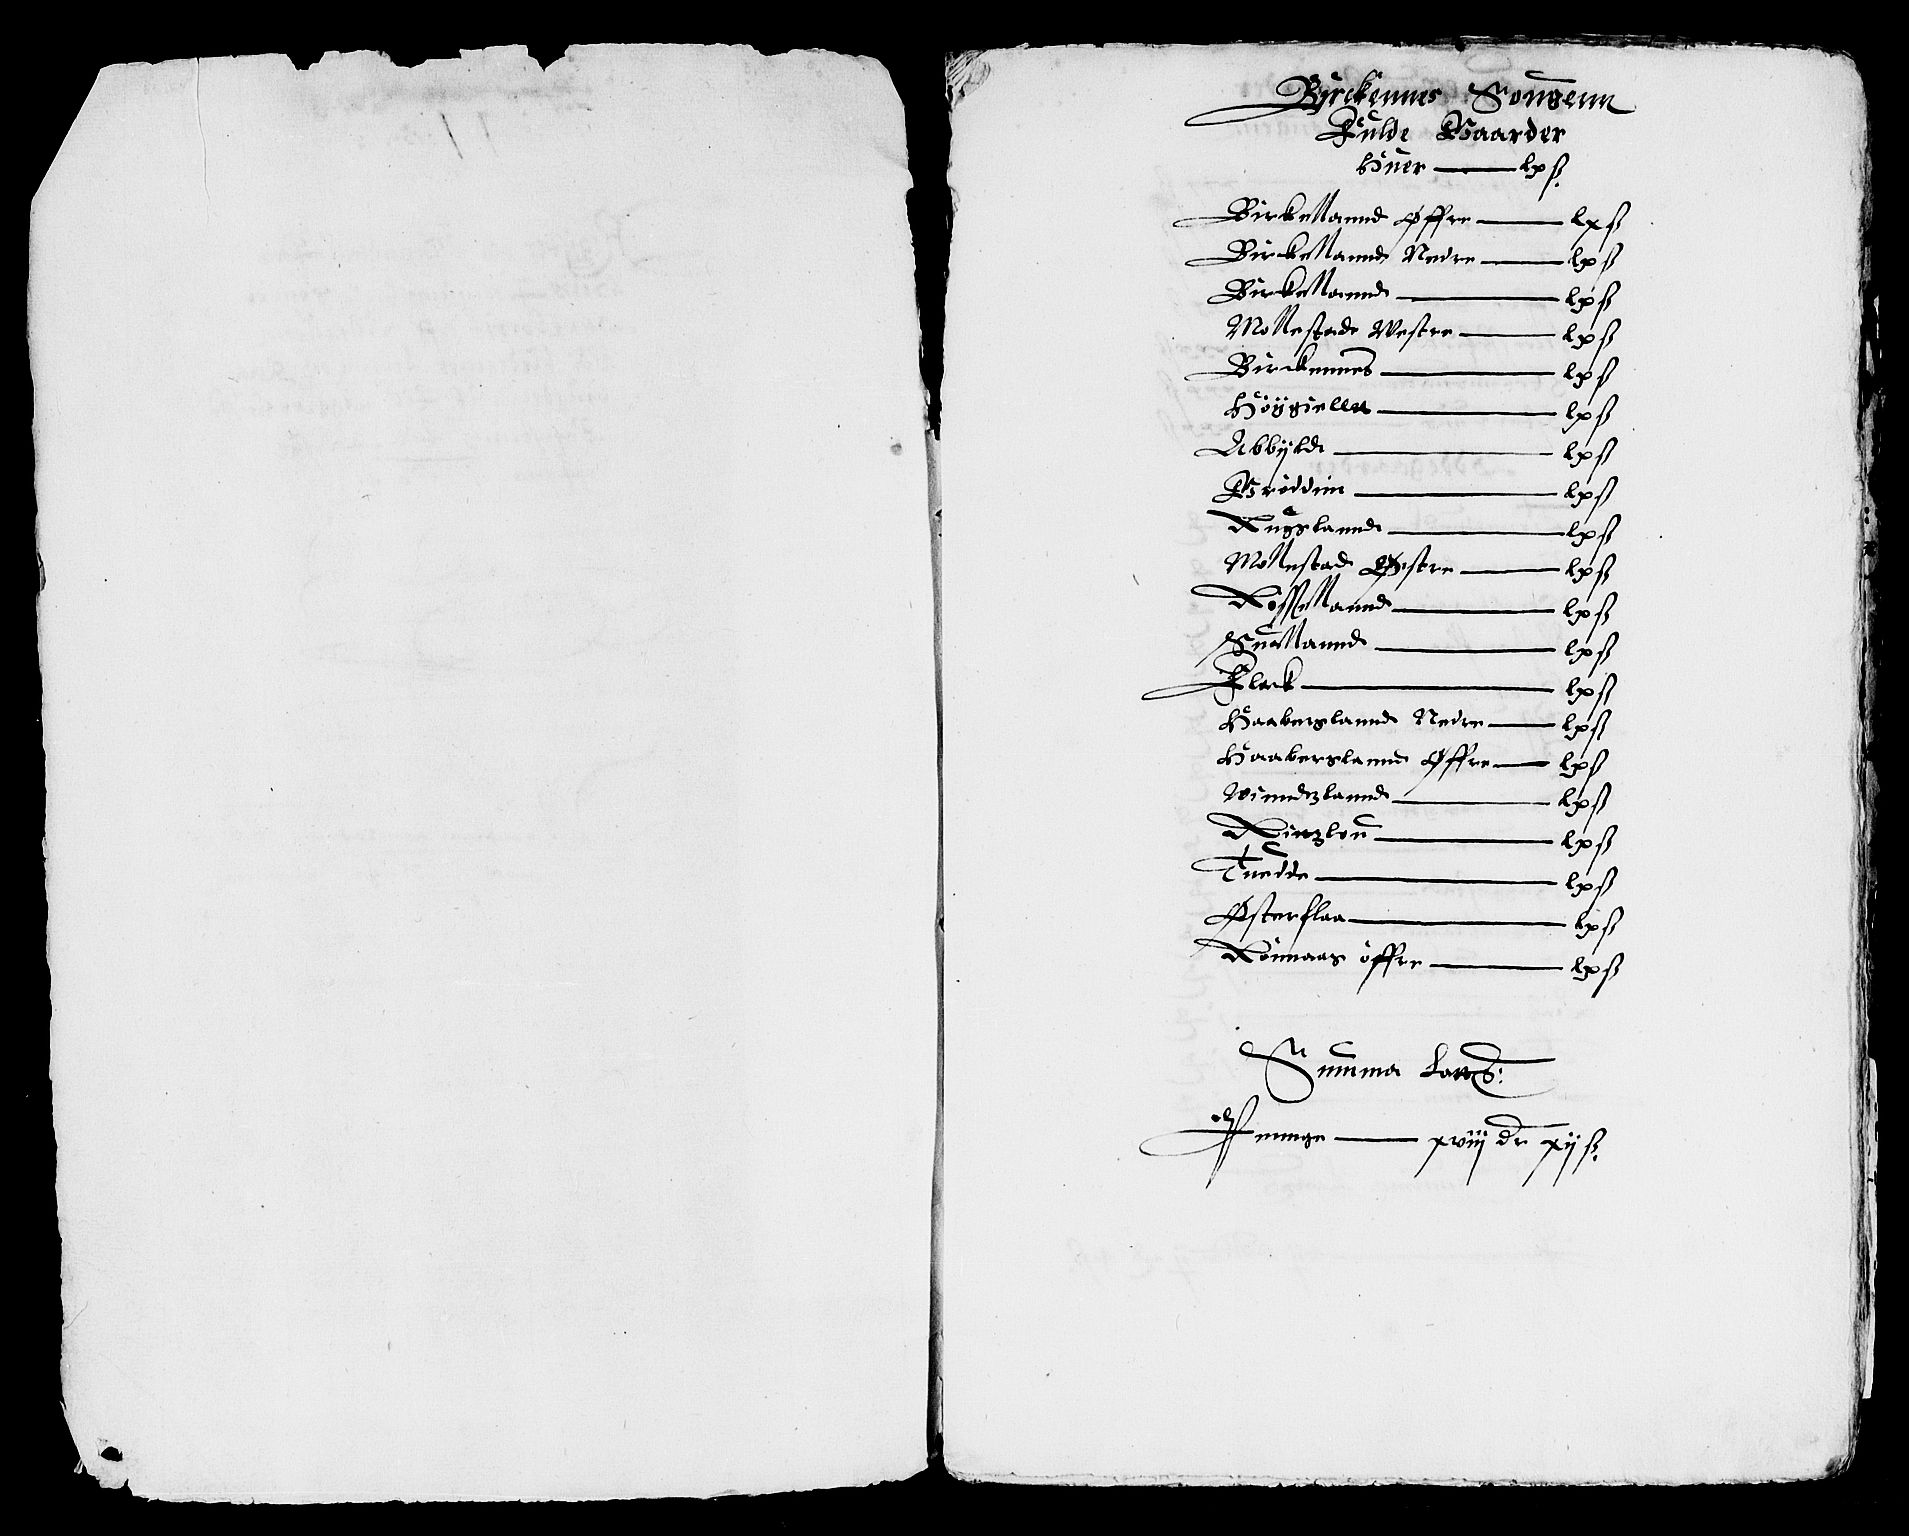 Byrckennes Songenn
Fulde Gaarder
Huer — lxß.
Birkellannd Øffre — lxß
Birkellannd Nedre — lxß
Birkellannd — lxß
Mollestade Westre — lxß
Birckennes — lxß
Höygiellt — lxß
Abbylde — lxß
Gröddim — lxß
Rugslannd — lxß
Mollestad Østre — lxß
Rossellannd — lxß
Suallannd — lxß
Flack — lxß
Haaberslannd Nedre — lxß
Haaberslannd Øffre — lxß
Winndzlannd — lxß
Rinzlou — lxß
Tuedde — lxß
Østerflaa — lxß
Röinaas öffre — lxß
Summa
Pennge — xviij dr xijß.